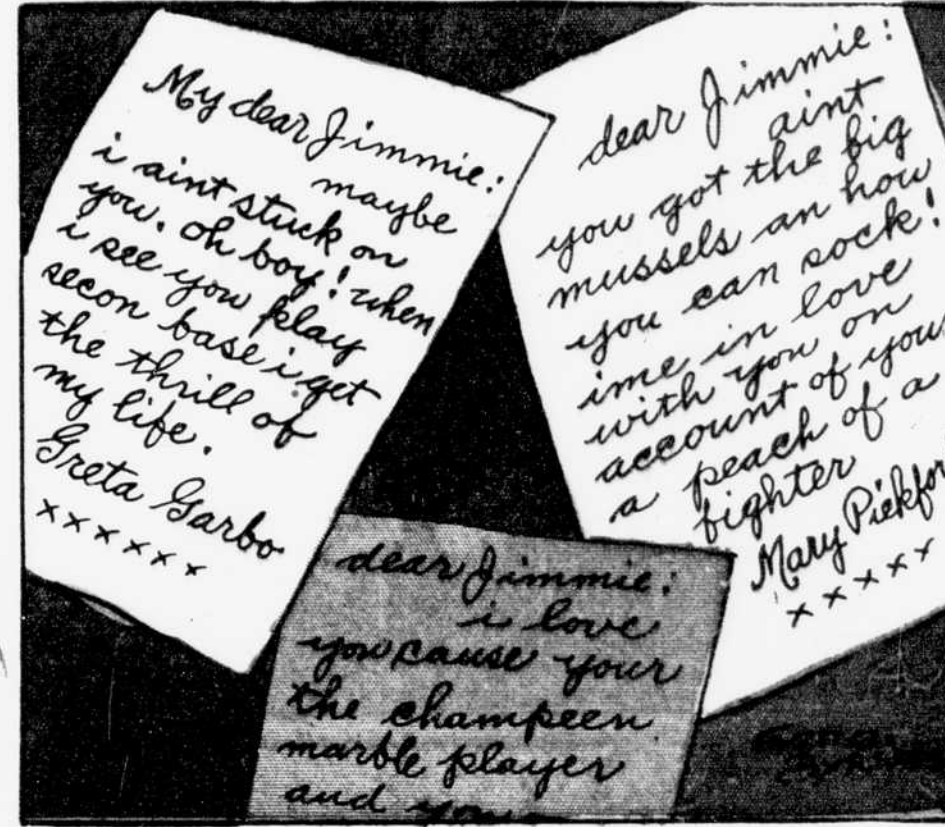 My dear Jimmie:
maybe
i aint stuck on
you. oh boy! when
i see you play
secon base i get
the thrill of
my life.
Greta Garbo
x x x x x x
dear Jimmie:
aint
you got the big
mussels an how
you can sock!
ime in love
with you on
account of your
a peach of a
fighter
Mary Pickfor
x x x x x
dear Jimmie:
i love
you cause your
the champeen
marble player
and you